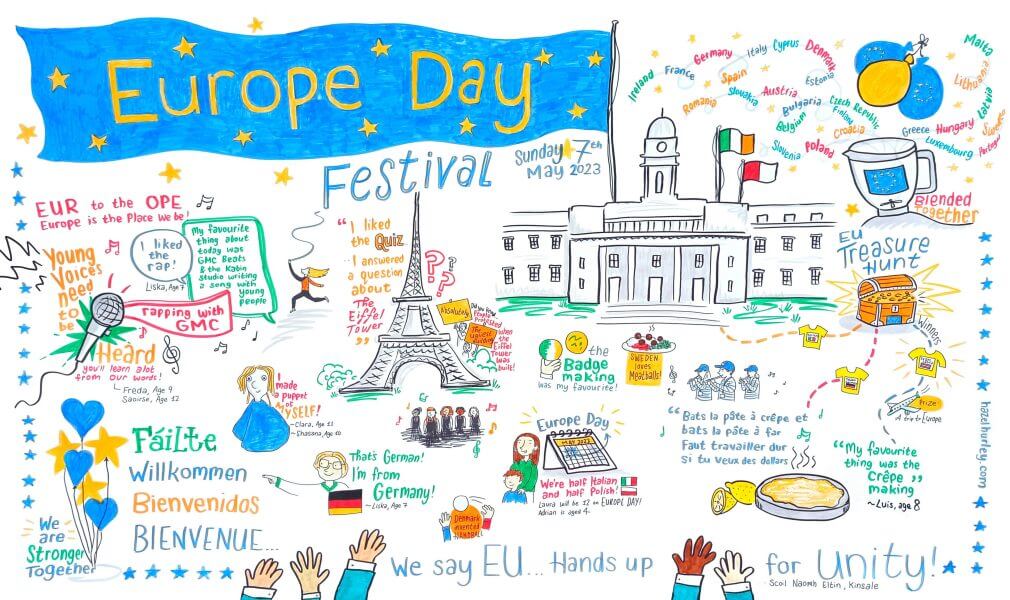 Europe Day
Festival
Sunday 7th
May 2023
Ireland
France
Germany
Italy
Cyprus
Denmark
Spain
Romania
Slovakia
Austria
Estonia
Bulgaria
Belgium
Czech Republic
Finland
Croatia
Slovenia
Poland
Greece
Hungary
Luxembourg
Malta
Lithuania
Latvia
Sweden
Portugal
Blended
Together
EUR to the OPE
Europe is the Place We be!
Young
Voices
need
to
be
Heard
I liked
the
rap!
Liska, Age 7
My favourite
thing about
today was
GMC Beats
& the Kabin
Studio writing
a song with
young
people
rapping with
GMC
you'll learn alot
from our words!
~ Freda, Age 9
Saoirse, Age 12
"I liked
the Quiz
I answered
a question
about
The
Eiffel
Tower"
???
Absolutely
when
the
Eiffel
Tower
was
built!
EU
Treasure
Hunt
Winners
Prize
A trip to Europe
hazelhurley.com
I
made
a puppet
of
MYSELF!
~Clara, Age 11
~Shasana, Age 10
the
Badge
making
was my favourite!
SWEDEN
loves
Meatballs!
"Bats la pâte à crêpe et
bats la pâte à far
Faut travailler dur
Si tu veux des dollars
"My favourite
thing was the
Crêpe
making"
~Luis, age 8
Fáilte
Willkommen
Bienvenidos
BIENVENUE...
That's German!
I'm from
Germany!
~Liska, Age 7
Europe Day
MAY 2023
We're half Italian
and half Polish!
Laura will be 12 on EUROPE DAY!
Adrian is aged 4.
Denmark
invented
HANDBALL
We
are
Stronger
Together
We say EU... Hands up for Unity!
Scoil Naomh Eltin, Kinsale